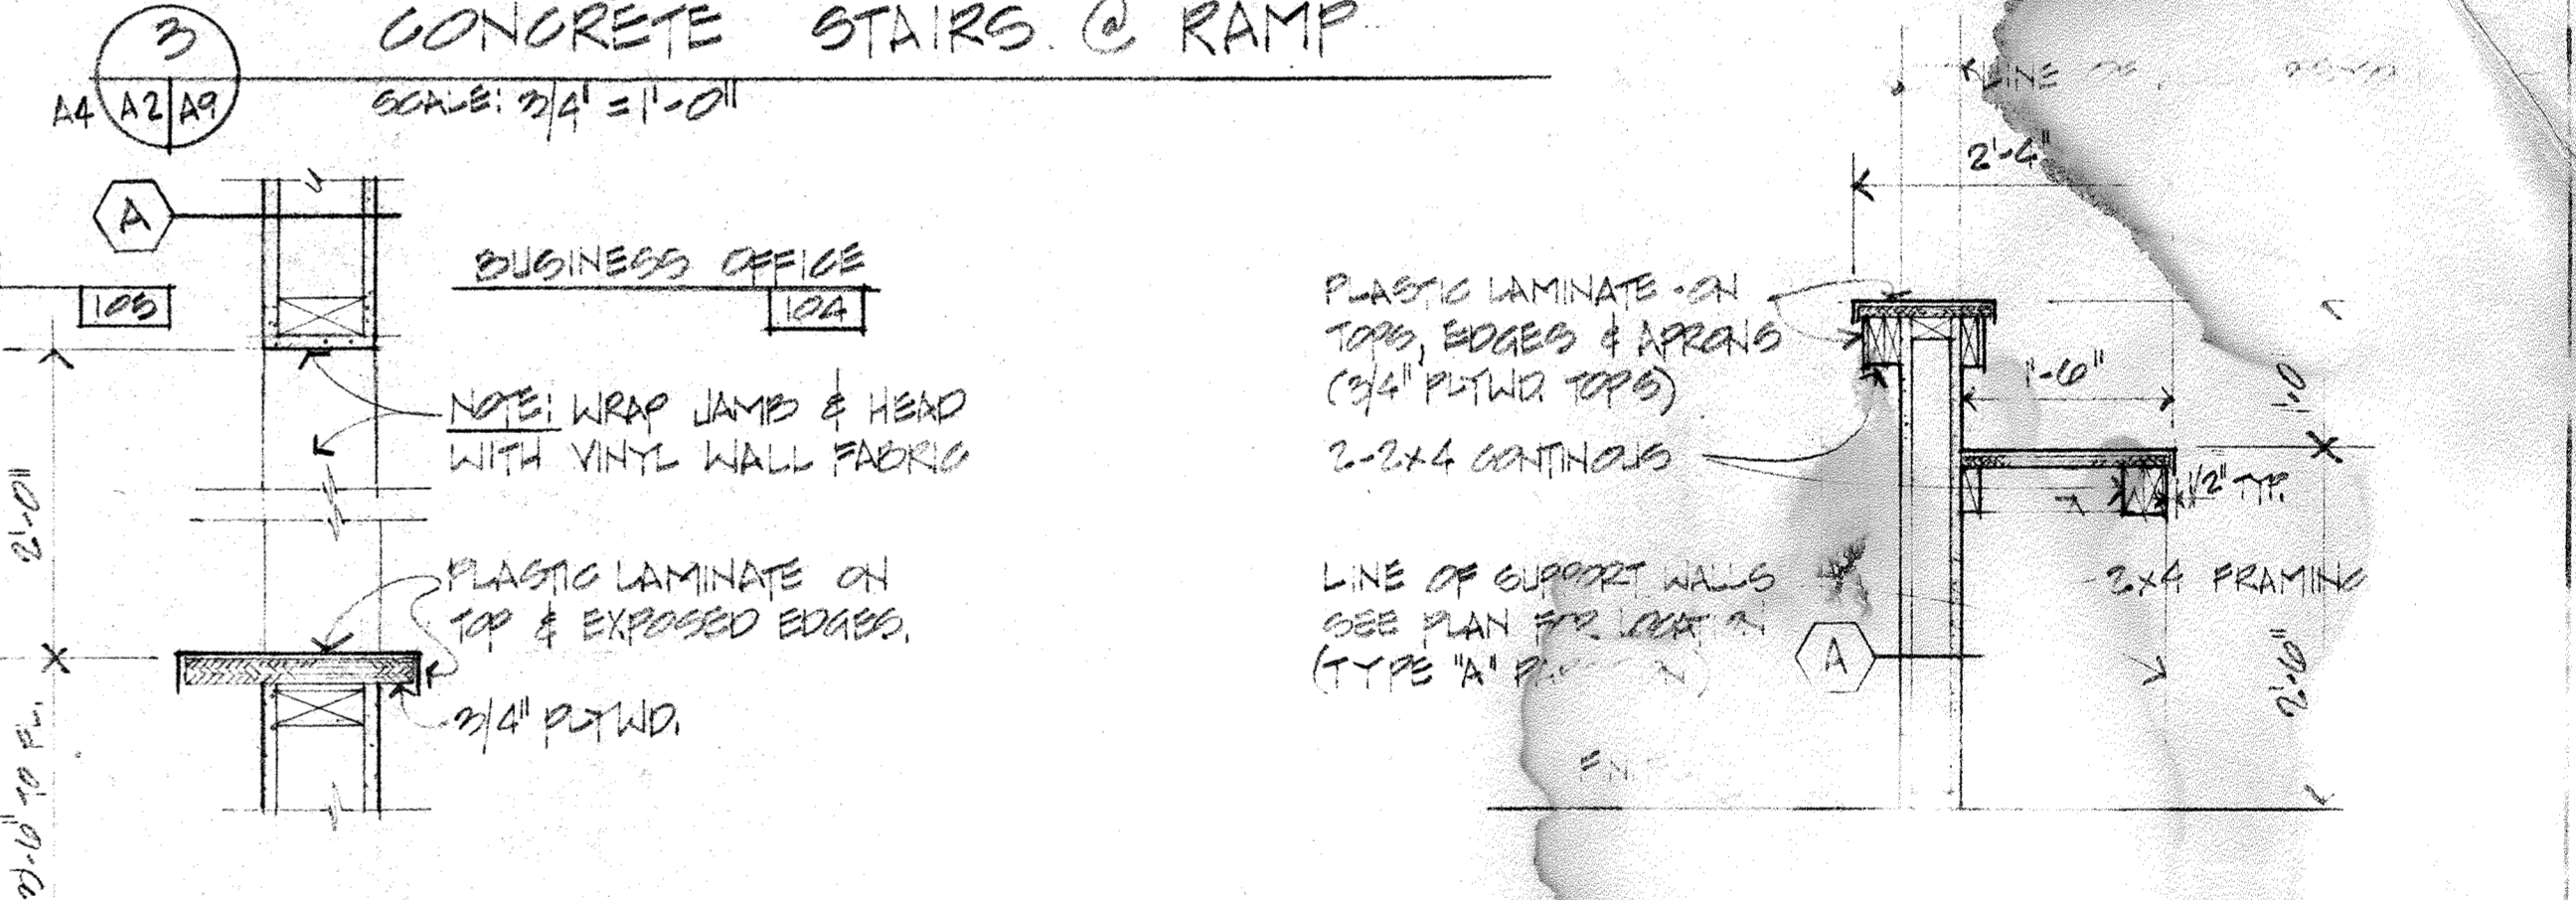 3
CONCRETE STAIRS @ RAMP
A4 A2 A9
SCALE: 3/4" = 1'-0"
A
BUSINESS OFFICE
103
104
NOTE: WRAP JAMB & HEAD
WITH VINYL WALL FABRIC
2'-0"
PLASTIC LAMINATE ON
TOP & EXPOSED EDGES.
3/4" PLYWD.
3'-6" TO FL.
LINE
2'-4"
PLASTIC LAMINATE - ON
TOPS, EDGES & APRONS
(3/4" PLYWD. TOPS)
2-2x4 CONTINOUS
1'-6"
1'-0
1/2" TYP.
LINE OF SUPPORT WALLS
SEE PLAN FOR LOCATION
(TYPE "A"
A
2x4 FRAMING
2'-6"